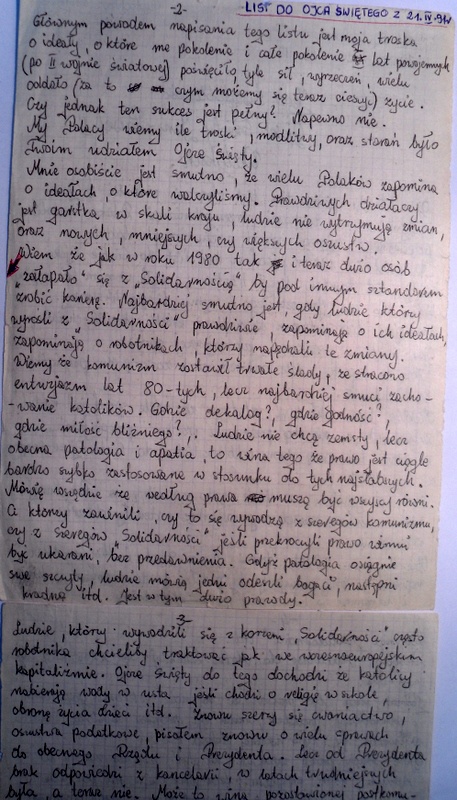 -2-
LIST DO OJCA ŚWIĘTEGO Z 21.IV.91r
Głównym powodem napisania tego listu jest moja troska
o ideały, o które me pokolenie i całe pokolenie lat powojennych
(po II wojnie światowej) poświęciło tyle sił, wyrzeczeń, wielu
oddało (za to czym możemy się teraz cieszyć) życie.
Czy jednak ten sukces jest pełny? Napewno nie.
My Polacy wiemy ile troski, modlitwy, oraz starań było
Twoim udziałem Ojcze Święty.
Mnie osobiście jest smutno, że wielu Polaków zapomina
o ideałach, o które walczyliśmy. Prawdziwych działaczy
jest garstka w skali kraju, ludzie nie wytrzymują zmian,
oraz nowych, mniejszych, czy większych oszustw.
Wiem że jak w roku 1980 tak i teraz dużo osób
"załapało" się z „Solidarnością" by pod innym sztandarem
zrobić karierę. Najbardziej smutno jest, gdy ludzie którzy
wyrośli z "Solidarności" prawdziwie, zapominają o ich ideałach,
zapominają o robotnikach, którzy napędzali te zmiany.
Wiemy że komunizm zostawił trwałe ślady, że stracono
entuzjazm lat 80-tych, lecz najbardziej smuci zacho-
-wanie katolików. Gdzie dekalog?, gdzie godność?,
gdzie miłość bliźniego?,. Ludzie nie chcą zemsty, lecz
obecna patologia i apatia, to wina tego że prawo jest ciągle
bardzo szybko zastosowane w stosunku do tych najsłabszych.
Mówię wszędzie że według prawa muszą być wszyscy równi.
Ci którzy zawinili, czy to się wywodzą z szeregów komunizmu,
czy z szeregów „Solidarności" jeśli przekroczyli prawo winni
być ukarani, bez przedawnienia. Gdyż patologia osiągnie
swe szczyty, ludzie mówią jedni odeszli bogaci, następni
kradną itd. Jest w tym dużo prawdy.
-3-
Ludzie, którzy wywodzili się z korzeni „Solidarności" często
robotnika chcieliby traktować jak we wczesnoeuropejskim
kapitalizmie. Ojcze Święty do tego dochodzi że katolicy
nabierają wody w usta jeśli chodzi o religię w szkole,
obronę życia dzieci itd. Znowu szerzy się cwaniactwo,
oszustwa podatkowe, pisałem znowu o wielu sprawach
do obecnego Rządu i Prezydenta. Lecz od Prezydenta
brak odpowiedzi z kancelarii, w latach trudniejszych
była, a teraz nie. Może to wina pozostawionej postkomu-